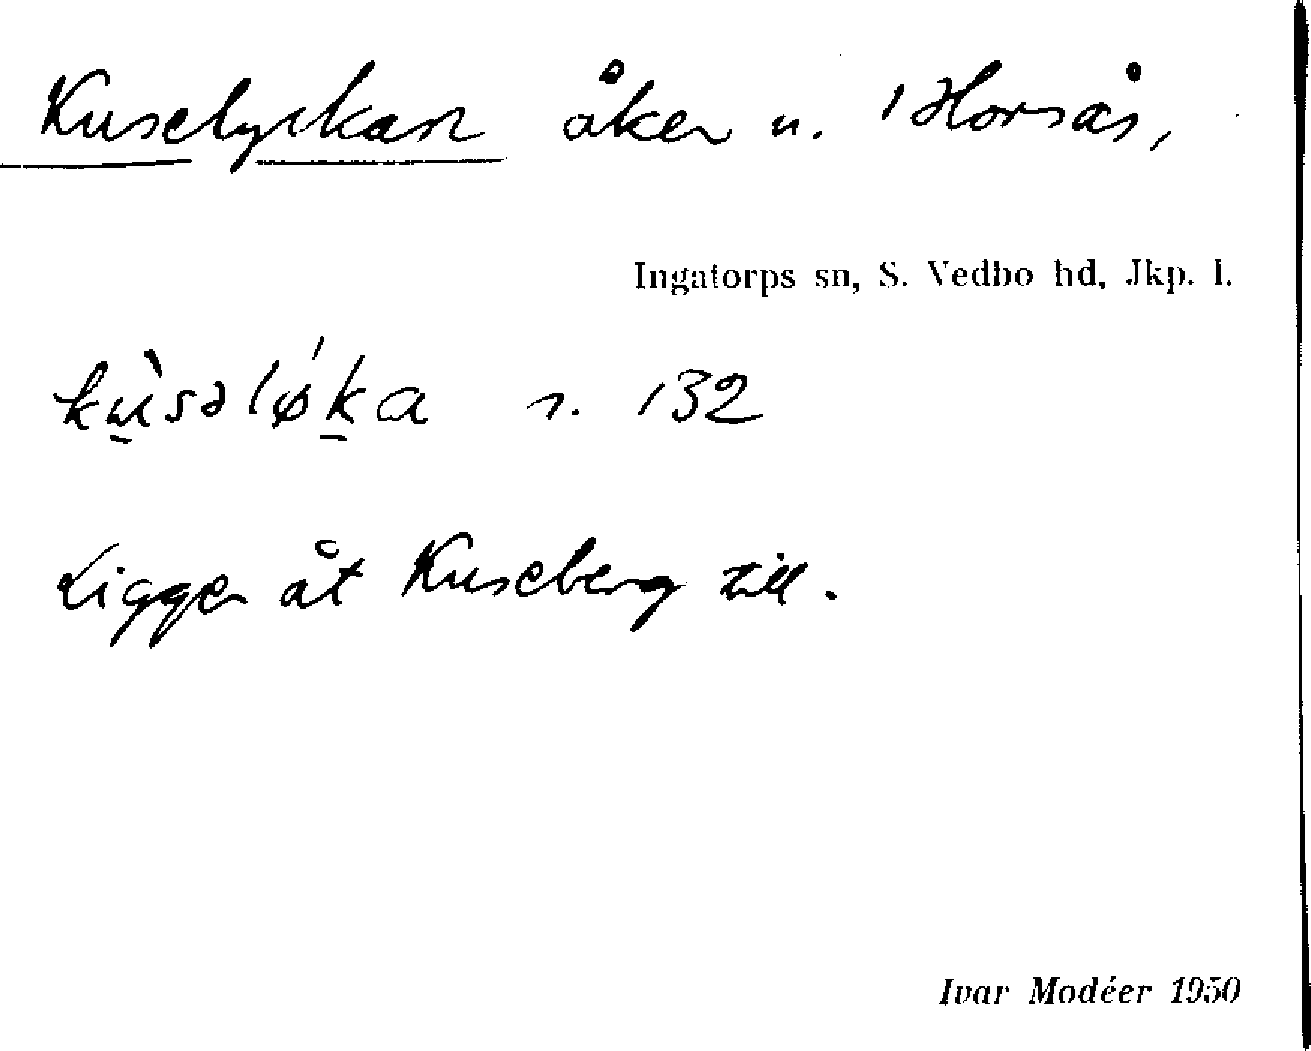 Kuselyckan åker u. Horsås,
Ingatorps sn, S. Vedbo hd, Jkp. l.
kùsəløḱa s. 132
Ligger åt Kuseberg till.
Ivar Modéer 1950